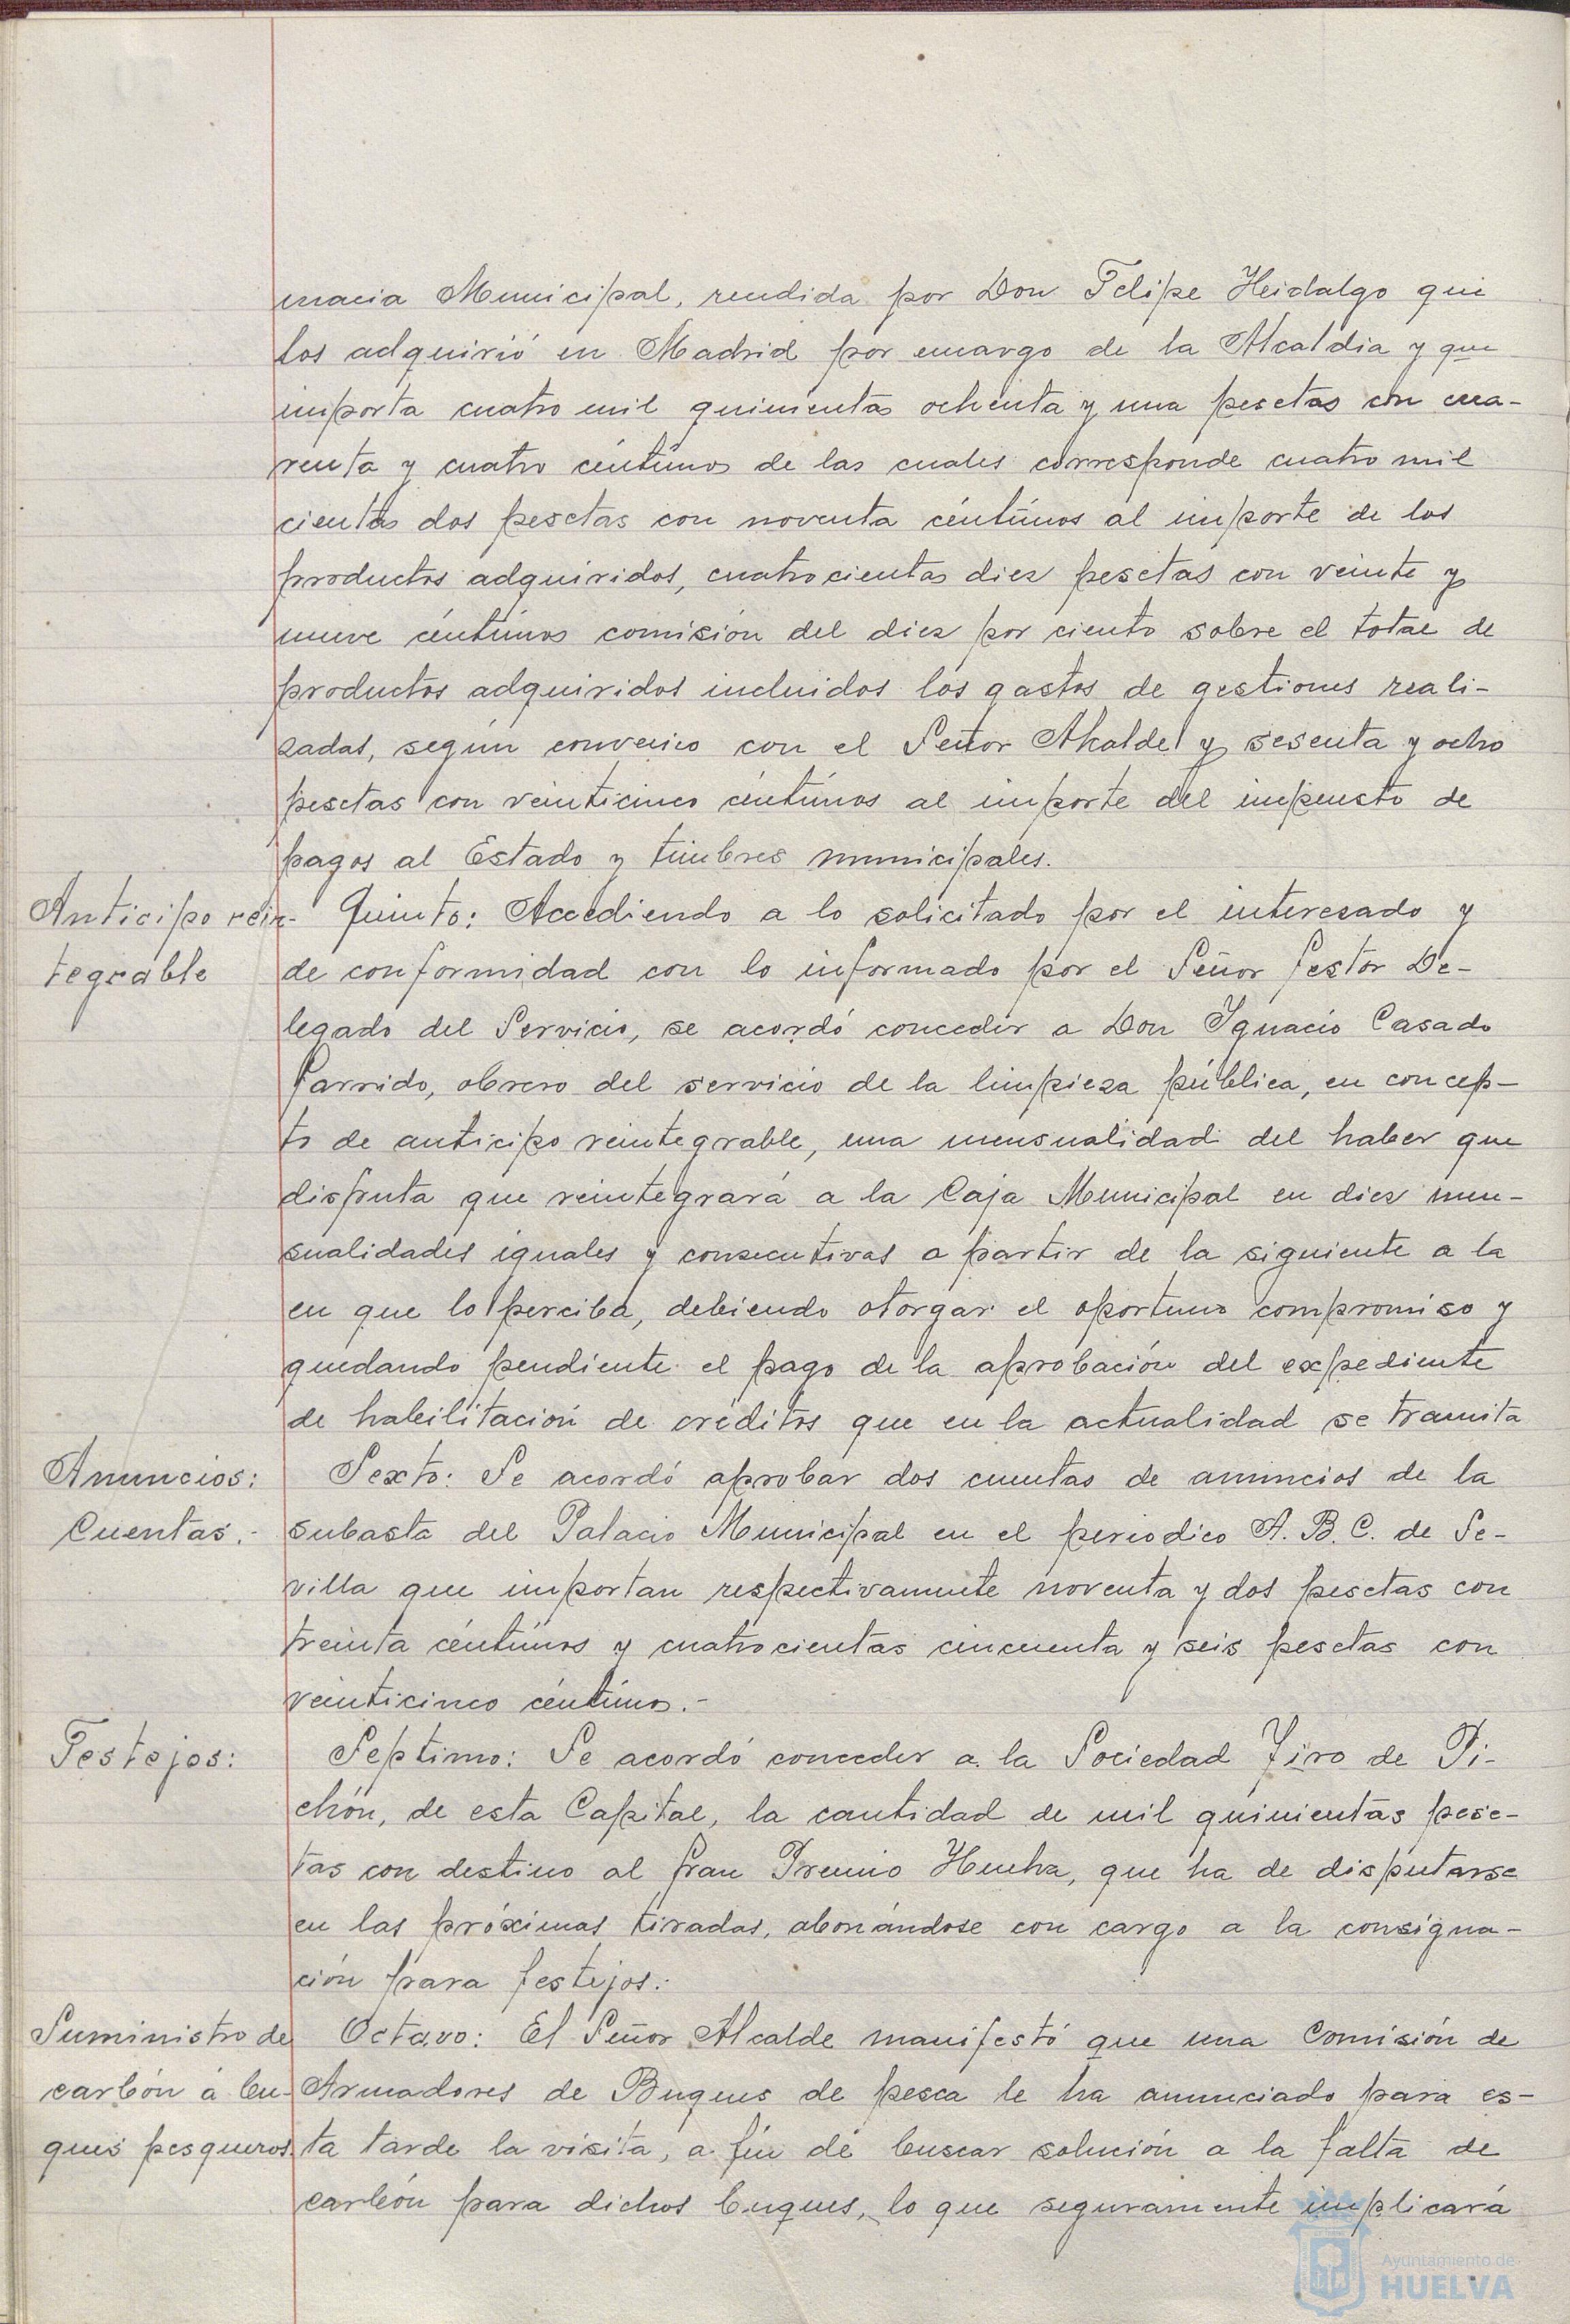 macia Municipal, rendida por Don Felipe Heidalgo que
los adquirió en Madrid por encargo de la Alcaldia y que
importa cuatro mil quinientas ochenta y una pesetas con cua-
renta y cuatro céntimos de las cuales corresponde cuatro mil
cientas dos pesetas con noventa céntimos al importe de los
productos adquiridos, cuatrocientas diez pesetas con veinte y
nueve céntimos comisión del diez por ciento sobre el total de
productos adquiridos incluidos los gastos de gestiones reali-
zadas, según convenio con el Señor Alcalde y sesenta y ocho
pesetas con veinticinco céntimos al importe del impuesto de
pagos al Estado y timbres municipales.
Anticipo rein-
tegrable
Quinto: Accediendo a lo solicitado por el interesado y
de conformidad con lo informado por el Señor Gestor De-
legado del Servicio, se acordó conceder a Don Ignacio Casado
Garrido, obrero del servicio de la limpieza pública, en concep-
to de anticipo reintegrable, una mensualidad del haber que
disfruta que reintegrará a la Caja Municipal en diez men-
sualidades iguales y consecutivas a partir de la siguiente a la
en que lo perciba, debiendo otorgar el oportuno compromiso y
quedando pendiente el pago de la aprobación del expediente
de habilitación de créditos que en la actualidad se tramita
Anuncios:
Cuentas.-
Sexto: Se acordó aprobar dos cuentas de anuncios de la
subasta del Palacio Municipal en el periodico A. B. C. de Se-
villa que importan respectivamente noventa y dos pesetas con
treinta céntimos y cuatrocientas cincuenta y seis pesetas con
veinticinco céntimos.-
Festejos:
Septimo: Se acordó conceder a la Sociedad Tiro de Pi-
chón, de esta Capital, la cantidad de mil quinientas pese-
tas con destino al Gran Premio Huelva, que ha de disputarse
en las próximas tiradas, abonándose con cargo a la consigna-
ción para festejos.-
Suministro de
carbón á bu-
ques pesqueros.
Octavo: El Señor Alcalde manifestó que una Comisión de
Armadores de Buques de pesca le ha anunciado para es-
ta tarde la visita, a fin de buscar solución a la falta de
carbón para dichos buques, lo que seguramente implicará
Ayuntamiento de
HUELVA